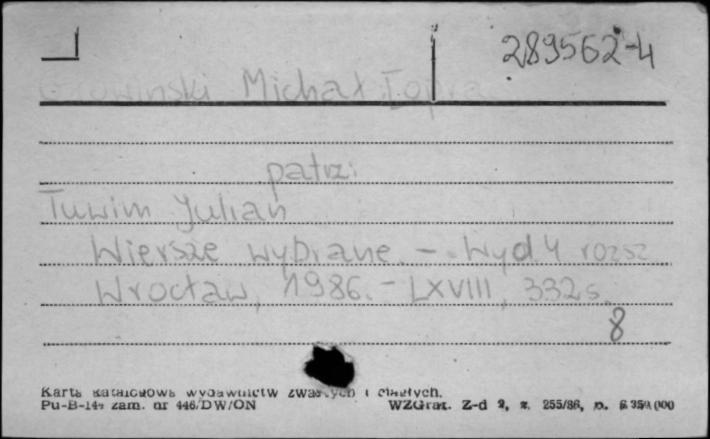 289562-4
Głowiński Michał: [Opra
patrz:
Tuwim Julian
Wiersze wybrane. - Wyd. 4 rozsz
Wrocław, 1986. - LXVIII, 332 s.
8
Karta katalogowa wydawnictw zwartych i ciągłych.
Pu-B-144 zam. nr 446/DW/ON WZGraf. Z-d 2, z. 255/86, n.